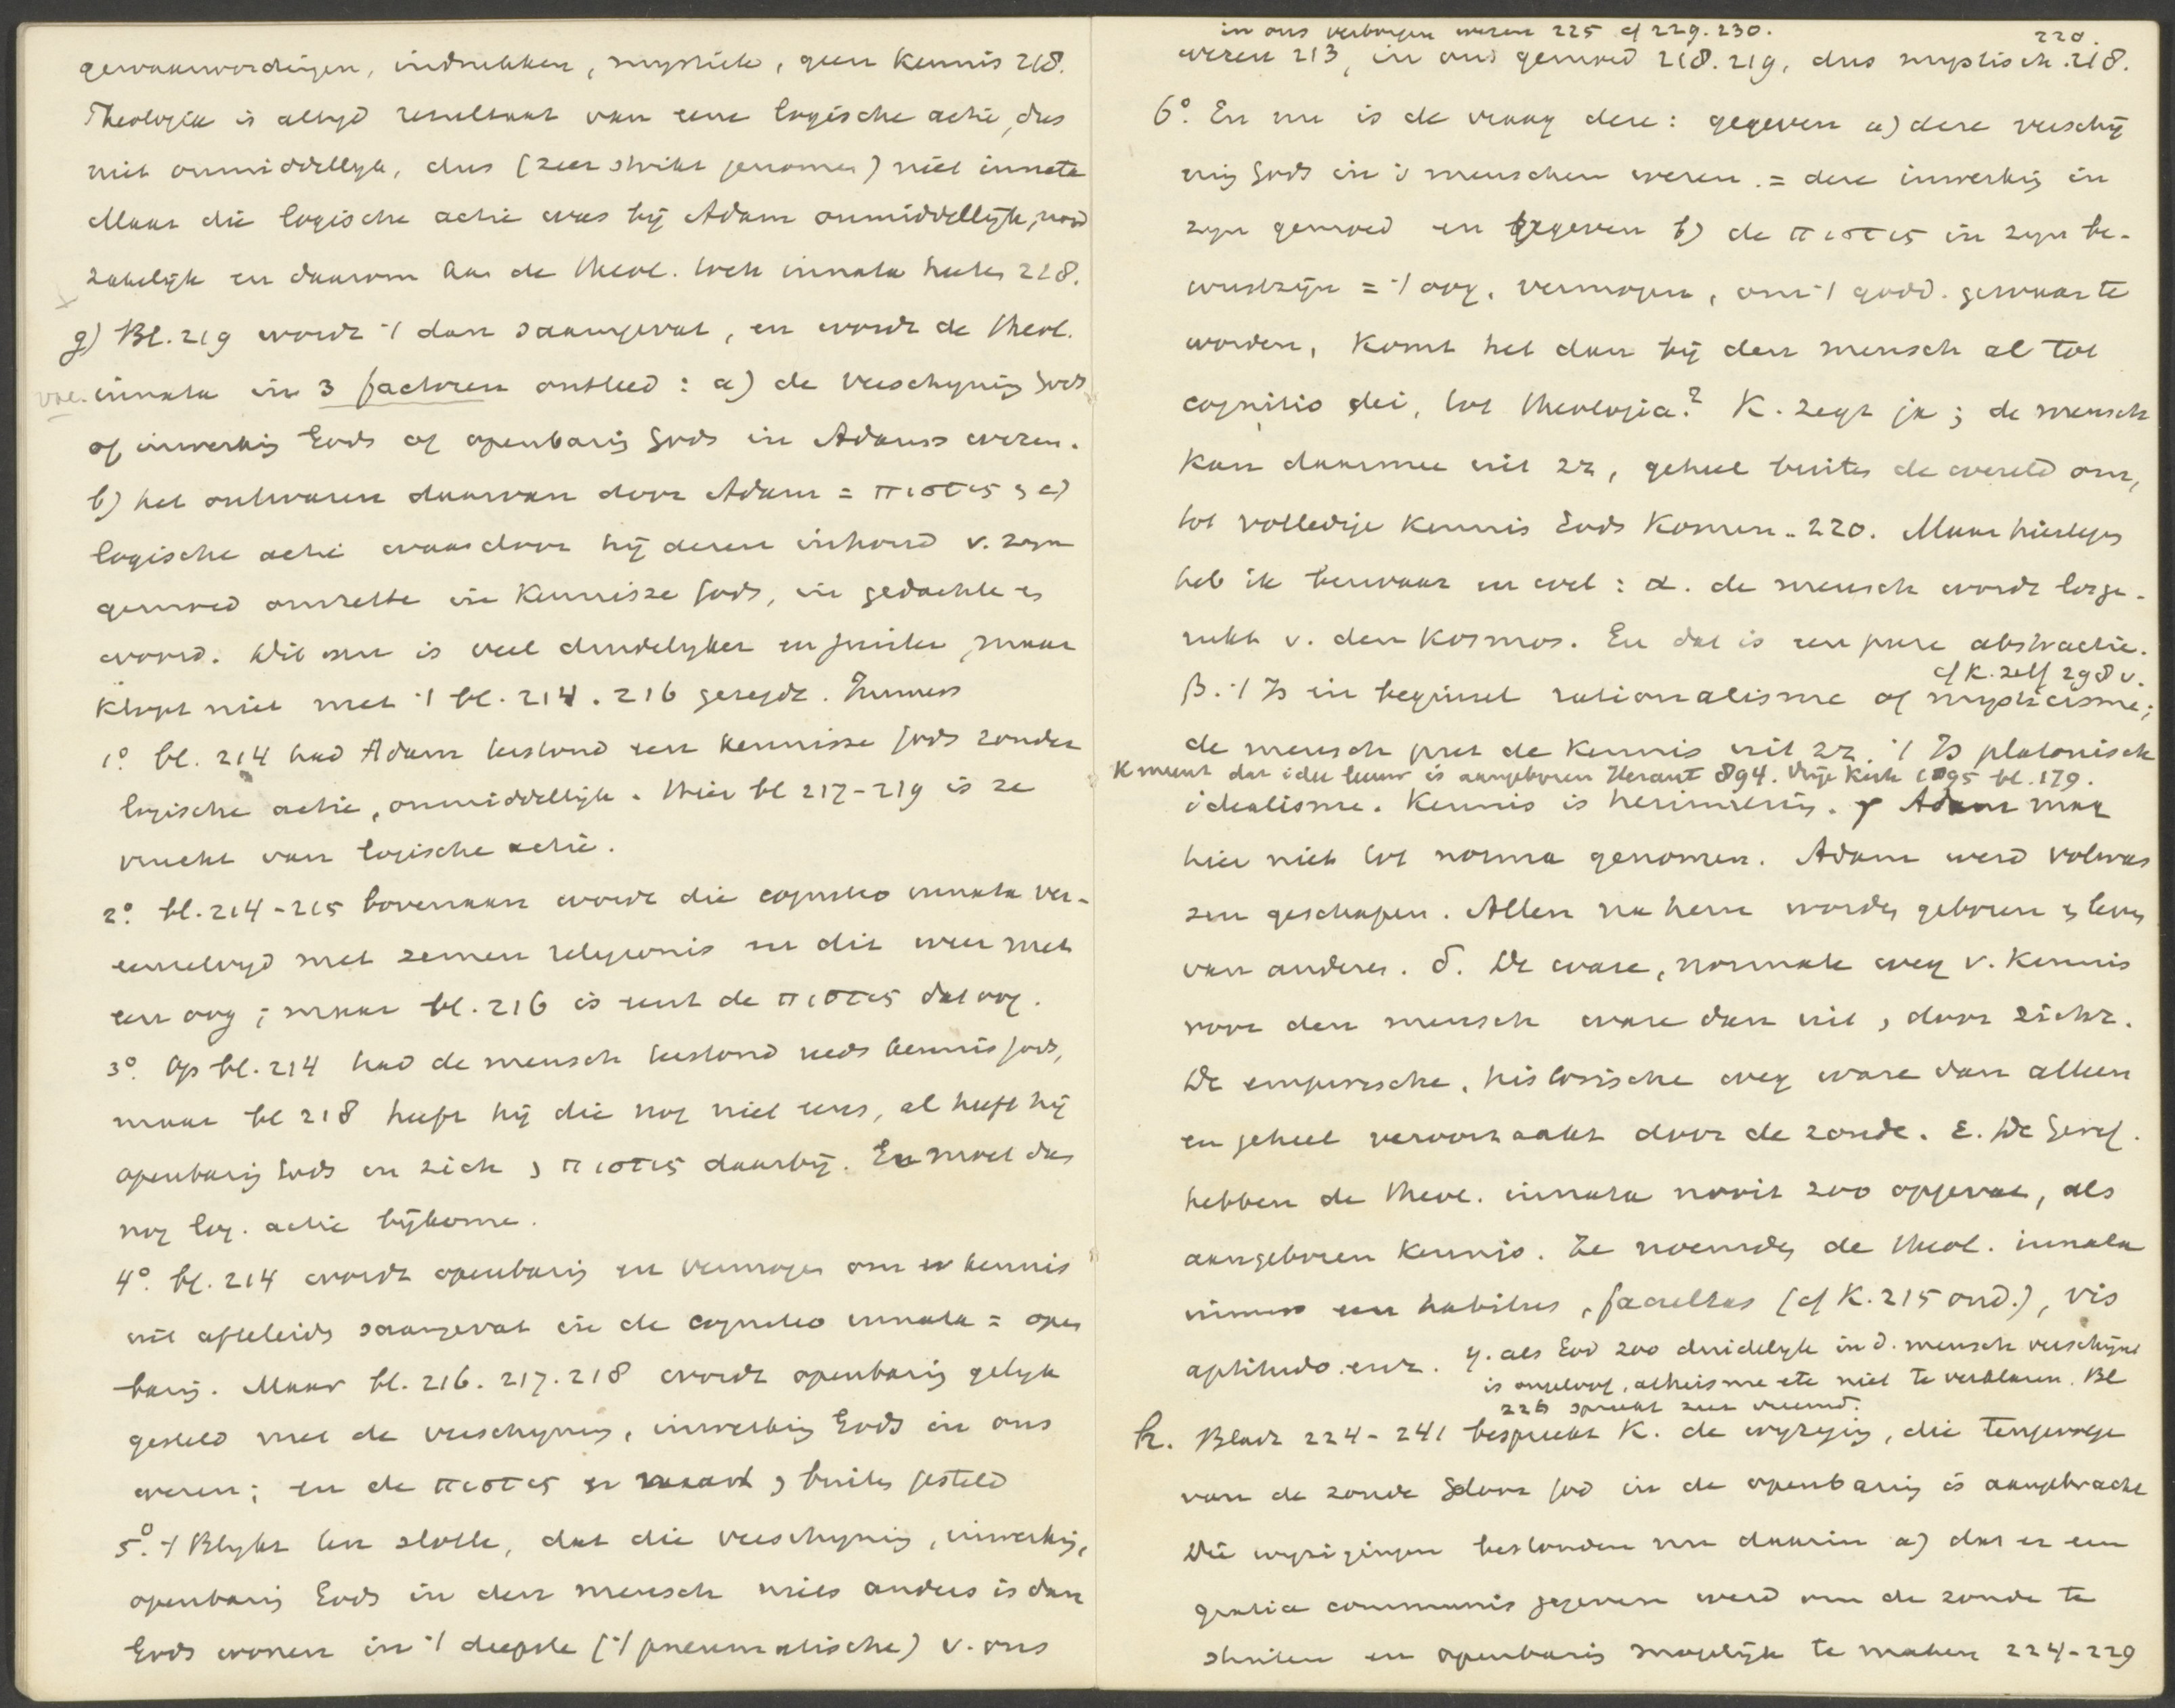 gewaarwordingen, indrukken, mystiek, geen Kennis 218.
Theologie is altyd resultaat van eene logische actie, dus
niet onmiddellyk, dus (zeer strikt genomen) niet innata
Maar die logische actie was bij Adam onmiddellijk, nood
zakelijk en daarom kan de theol. toch innata heeten 218.
g) Bl. 219 wordt 't dan saamgevat, en wordt de theol.
innata in 3 factoren ontleed: a) de verschyning Gods
of inwerking Gods of openbaring Gods in Adams wezen.
b) het ontwaren daarvan door Adam = πιστις c)
logische actie waardoor hij dezen inhoud v. zyn
gemoed omzette in Kennisse Gods, in gedachte en
woord. Dit nu is veel duidelyker en juister, maar
klopt niet met 't bl. 214. 216 gezegde. Immers
1° bl. 214 had Adam terstond een kennisse Gods zonder
logische actie, onmiddellijk. Hier bl 217-219 is ze
vrucht van logische actie.
2° bl. 214-215 bovenaan wordt die cognitio innata ver-
eenzelvigd met semen religionis en dit weer met
een oog; maar bl. 216 is eerst de πιστις dat oog.
3° Op bl. 214 had de mensch terstond reeds kennis Gods,
maar bl 218 heeft hij die nog niet eens, al heeft hij
openbaring Gods in zich, πιστις daarbij. Er moet dus
nog log. actie bijkomen.
4° bl. 214 wordt openbaring en vermogen om er kennis
uit afteleiden saamgevat in de cognitio innata = open
baring. Maar bl. 216. 217. 218 wordt openbaring gelyk
gesteld met de verschyning, inwerking Gods in ons
wezen; en de πιστις er buiten gesteld
5° 't Blykt ten slotte, dat die verschyning, inwerking,
openbaring Gods in den mensch niets anders is dan
Gods wonen in 't diepste ('t pneumatische) v. ons
in ons verborgen wezen 225 cf 229. 230.
wezen 213, in ons gemoed 218. 219, dus mystisch 218.
220.
6° En nu is de vraag deze: gegeven a) deze verschij
ning Gods in 's menschen wezen = deze inwerking in
zyn gemoed en gegeven b) de πιστις in zyn be-
wustzijn = 't oog, vermogen, om 't godd. gewaar te
worden, Komt het dan bij den mensch al tot
cognitio dei, tot theologia? K. zegt ja; de mensch
Kan daarmee uit zz, geheel buiten de wereld om,
tot volledige Kennis Gods Komen. 220. Maar hiertegen
heb ik bezwaar en wel: α. de mensch wordt losge-
rukt v. den Kosmos. En dat is een pure abstractie.
cf K. zelf 298 v.
β. 't Is in beginsel rationalisme of mysticisme;
de mensch put de Kennis uit zz. 't Is platonisch
K meent dat idee leeuw is aangeboren Heraut 894. Vrije Kerk 1895 bl. 179.
idealisme. Kennis is herinnering. γ Adam mag
hier niet tot norma genomen. Adam werd volwas
sen geschapen. Allen na hem worden geboren en leven
van anderen. δ. De ware, normale weg v. Kennis
voor den mensch ware dan uit, door zichz.
De empirische, historische weg ware dan alleen
en geheel veroorzaakt door de zonde. ε. De Geref.
hebben de theol. innata nooit zoo opgevat, als
aangeboren Kennis. Ze noemden de theol. innata
immers een habitus, facultas (cf K. 215 ond.), vis
aptitudo enz. η. als God zoo duidelyk in d. mensch verschijnt
is ongeloof, atheisme etc niet te verklaren. Bl
226 spreekt zeer vreemd.
h. Bladz 224-241 bespreekt K. de wyziging, die tengevolge
van de zonde door God in de openbaring is aangebracht
Die wyzigingen bestonden nu daarin a) dat er een
gratia communis gegeven werd om de zonde te
stuiten en openbaring mogelijk te maken 224-229